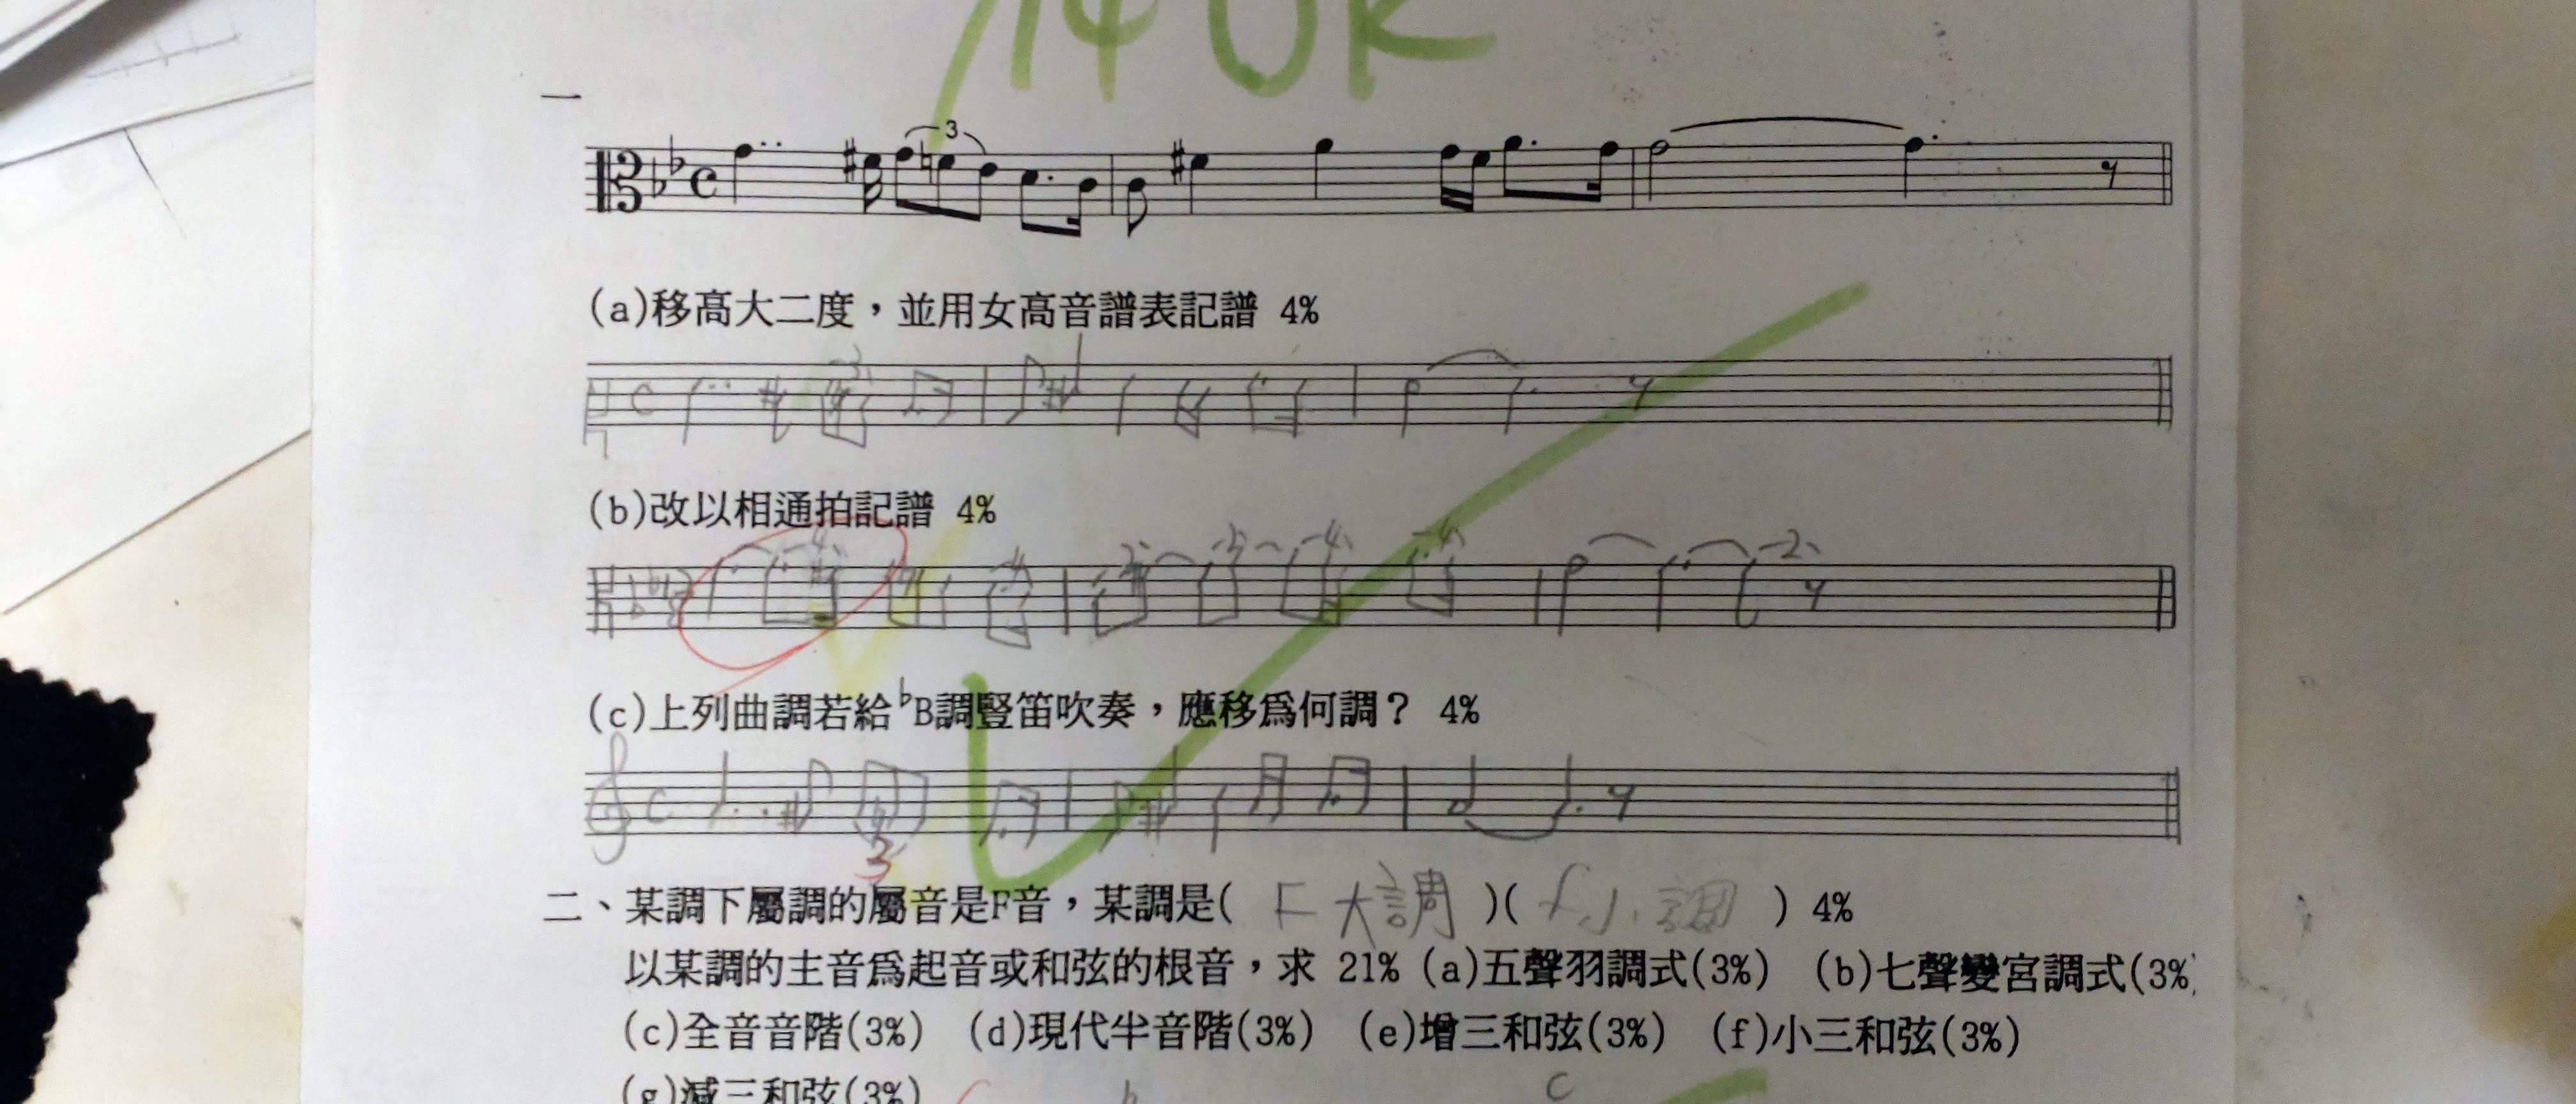 一
3
(a)移高大二度，並用女高音譜表記譜 4%
3
(b)改以相通拍記譜 4%
(c)上列曲調若給♭B調豎笛吹奏，應移為何調？ 4%
3
二、某調下屬調的屬音是F音，某調是( F大調 )( f小調 ) 4%
以某調的主音為起音或和弦的根音，求 21% (a)五聲羽調式(3%) (b)七聲變宮調式(3%)
(c)全音音階(3%) (d)現代半音階(3%) (e)增三和弦(3%) (f)小三和弦(3%)
(g)減三和弦(3%)